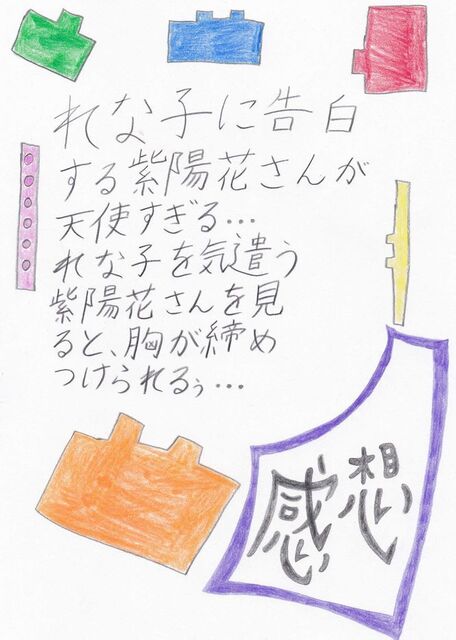 れな子に告白
する紫陽花さんが
天使すぎる…
れな子を気遣う
紫陽花さんを見
ると、胸が締め
つけられるぅ…
感想